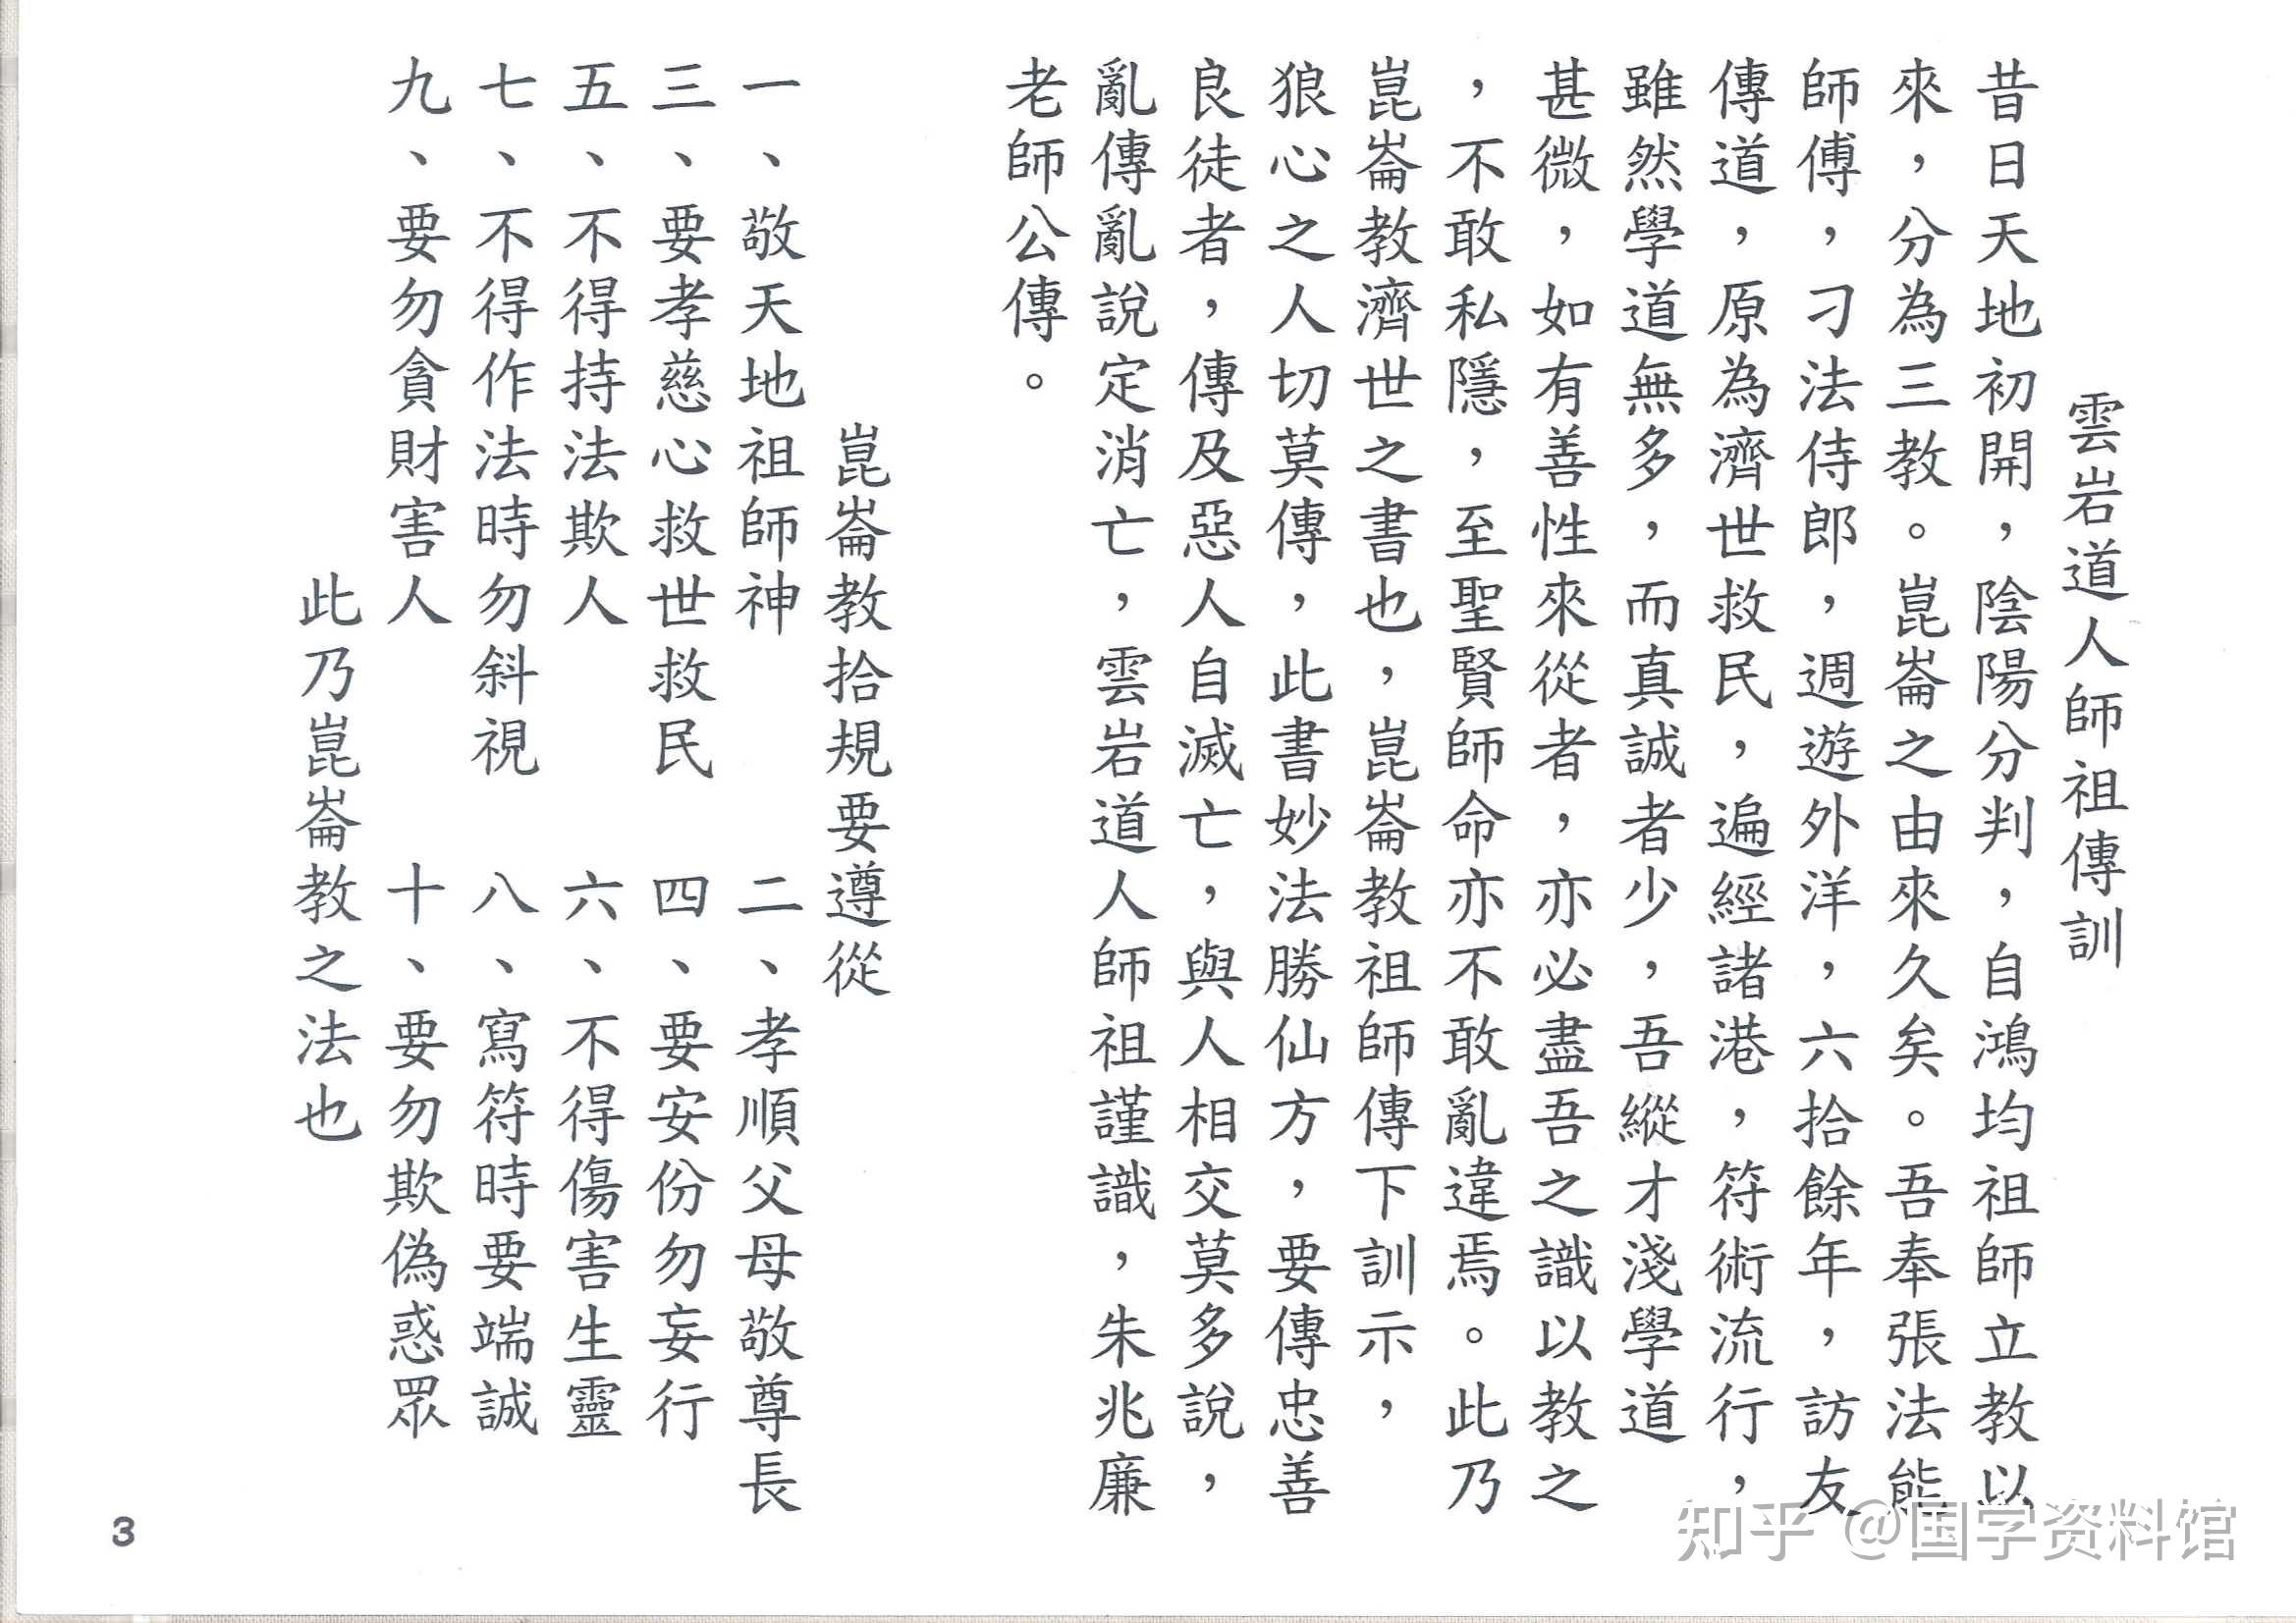 雲岩道人師祖傳訓
昔日天地初開，陰陽分判，自鴻均祖師立教以
來，分為三教。崑崙之由來久矣。吾奉張法能
師傅，刁法侍郎，週遊外洋，六拾餘年，訪友
傳道，原為濟世救民，遍經諸港，符術流行，
雖然學道無多，而真誠者少，吾縱才淺學道
甚微，如有善性來從者，亦必盡吾之識以教之
，不敢私隱，至聖賢師命亦不敢亂違焉。此乃
崑崙教濟世之書也，崑崙教祖師傳下訓示，
狼心之人切莫傳，此書妙法勝仙方，要傳忠善
良徒者，傳及惡人自滅亡，與人相交莫多說，
亂傳亂說定消亡，雲岩道人師祖謹識，朱兆廉
老師公傳。
崑崙教拾規要遵從
一、敬天地祖師神　二、孝順父母敬尊長
三、要孝慈心救世救民　四、要安份勿妄行
五、不得持法欺人　六、不得傷害生靈
七、不得作法時勿斜視　八、寫符時要端誠
九、要勿貪財害人　十、要勿欺偽惑眾
此乃崑崙教之法也
3
知乎 @国学资料馆